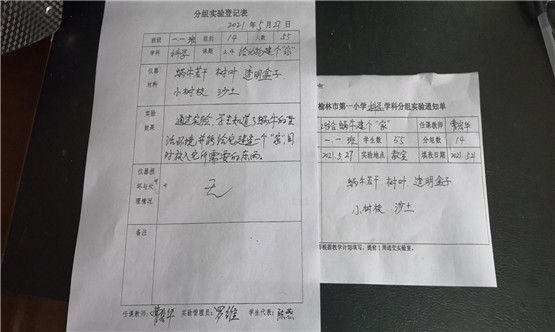 分组实验登记表
2021 年 5 月 27 日
班级 一.一班 组班 14 人数 55
学科 科学 课题 2.4 给动物建个"家"
仪器材料 蜗牛若干 树叶 透明盒子
小树枝 沙土
实验效果 通过实验,学生知道了蜗牛的生
活环境并能给它建造一个"家",同
时放入它所需要的东西。
仪器损坏与处理情况 无
备注
任课教师: 实验管理员:罗维 学生代表:
榆林市第一小学科学学科分组实验通知单
给蜗牛建个"家" 任课教师
一.一班 学生数 55 分组数 14
2021.5.27 实验地点 教室 填表日期 2021.5.21
蜗牛若干 树叶 透明盒子
小树枝 沙土
根据教学计划填写,提前1周送交实验室。